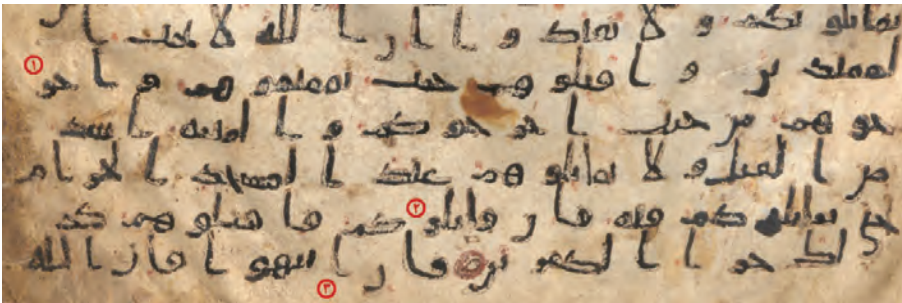 يقاتلونكم و لا تعتدوا ا ن الله لا يحب ا
لمعتدين و اقتلوهم حيث ثقفتموهم و اخر ١
جوهم من حيث اخرجوكم و الفتنه اشد
من القتل و لا تقاتلوهم عند المسجد الحرام
حتى يقاتلوكم فيه فان قاتلوكم ٢ فاقتلوهم كذ
لك جزا الكفرين فان ٣ انتهوا فان الله